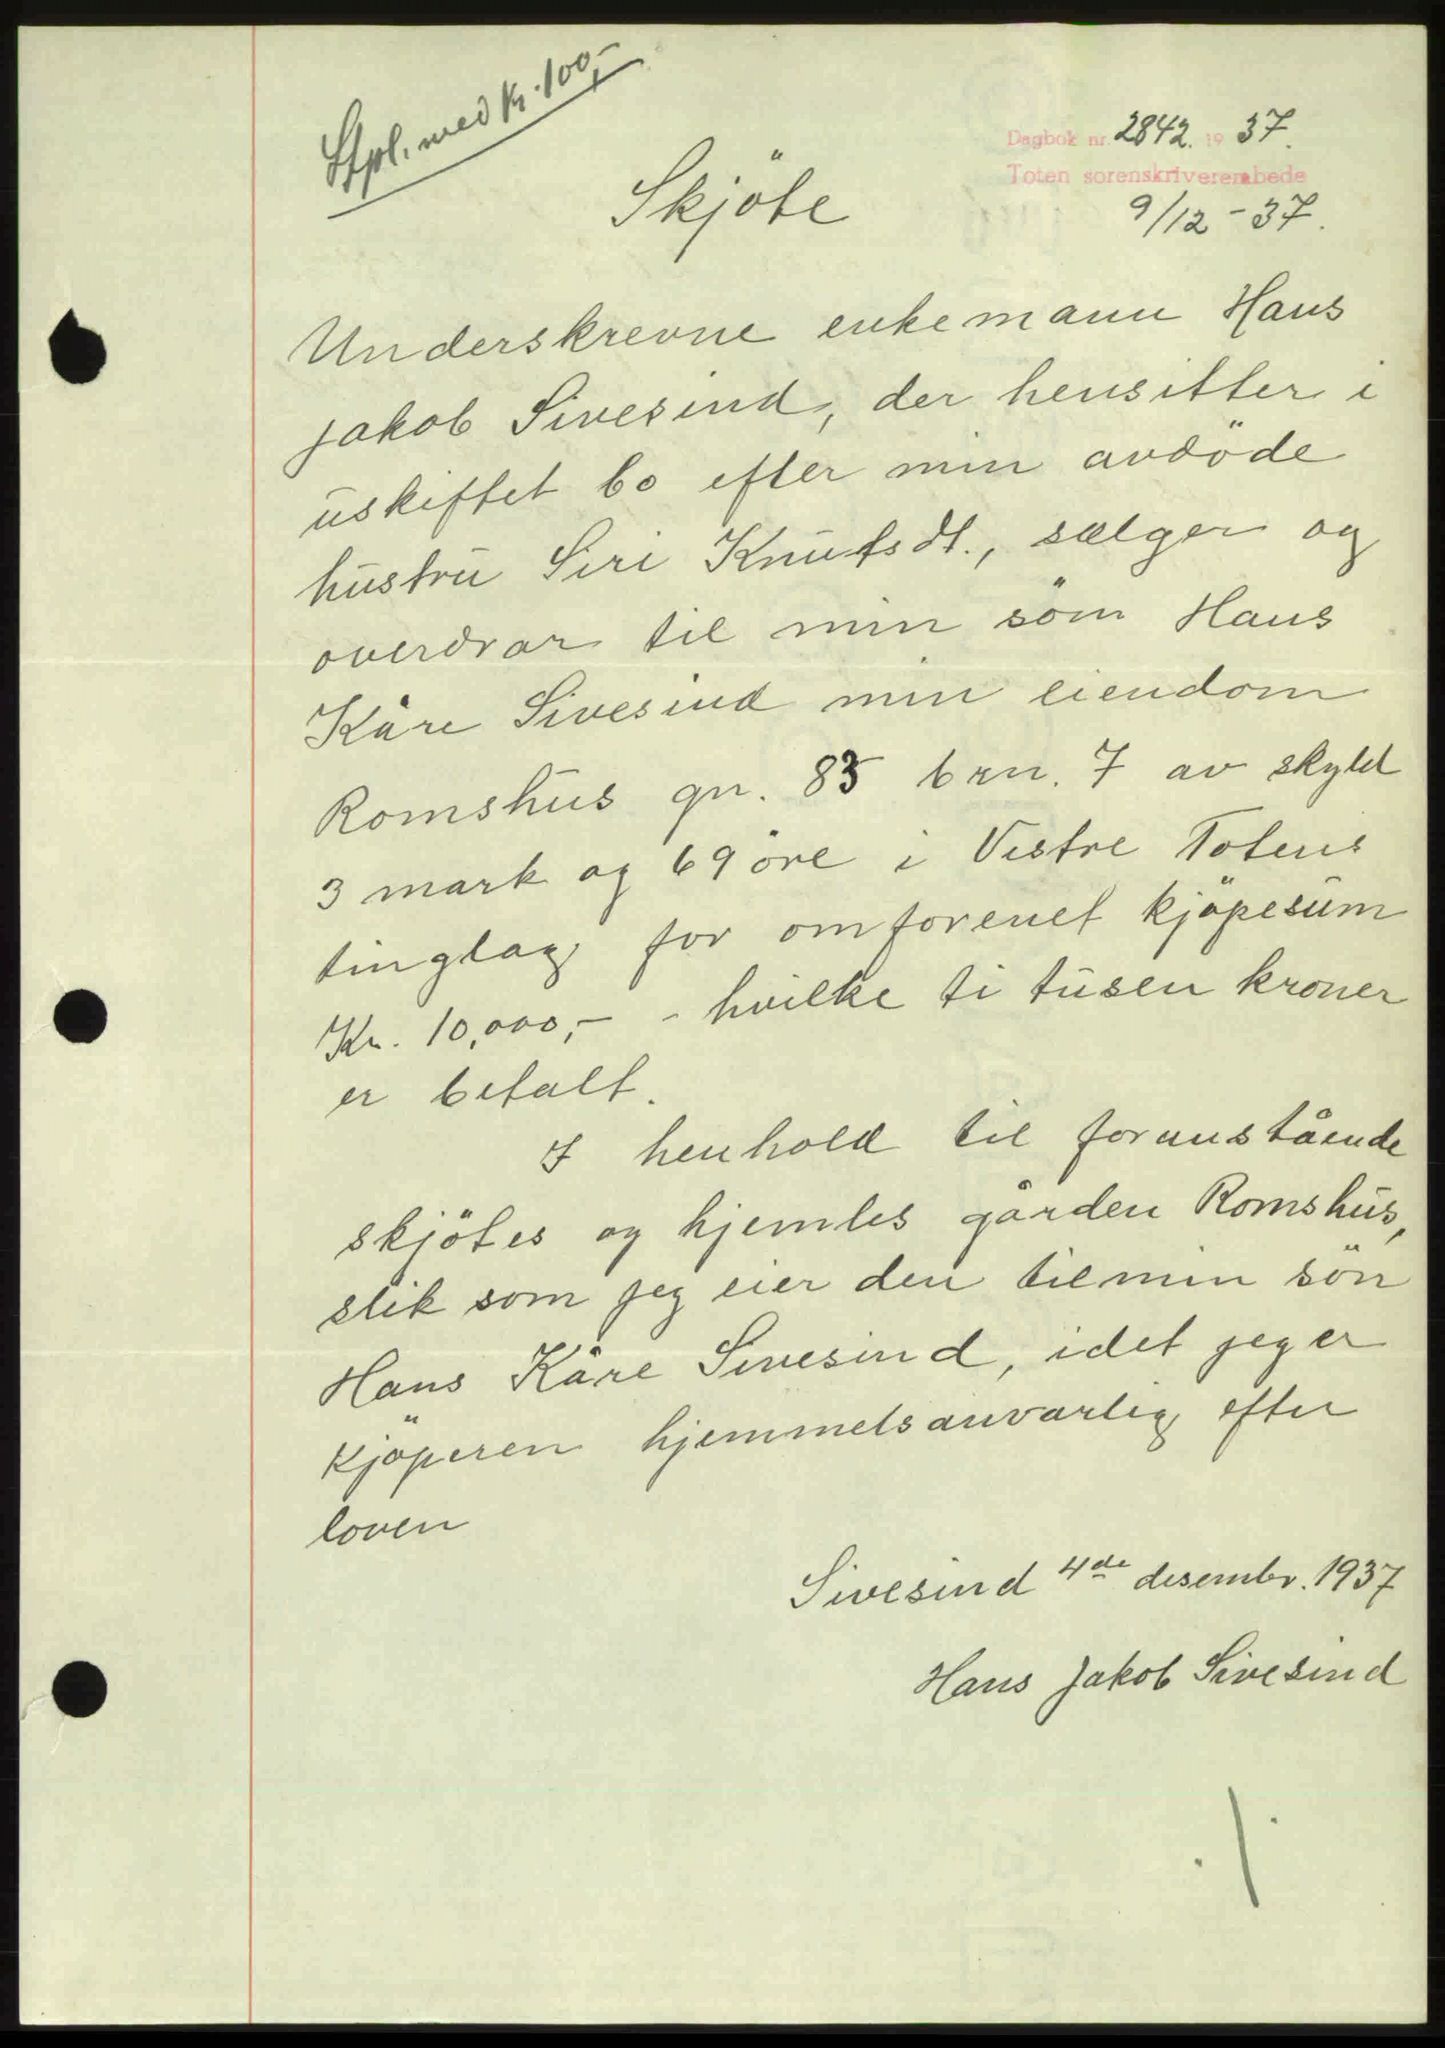 Stpl. med kr. 100,-
Dagbok nr. 2842. 1937.
Toten sorenskriverembede
9/12 - 37.
Skjöte
Underskrevne enkemann Hans
Jakob Sivesind, der hensitter i
uskiftet bo efter min avdöde
hustru Siri Knutsdt., sælger og
overdrar til min sön Hans
Kåre Sivesind min eiendom
Romshus gn. 85 brn. 7 av skyld
3 mark og 69 öre i Vestre Totens
tinglag for omforenet kjöpesum
Kr. 10,000,- - hvilke ti tusen kroner
er betalt.
I henhold til foranstående
skjötes og hjemles gården Romshus,
slik som jeg eier den til min sön
Hans Kåre Sivesind, idet jeg er
kjöperen hjemmelsanvarlig efter
loven
Sivesind 4de desembr. 1937
Hans Jakob Sivesind
./.